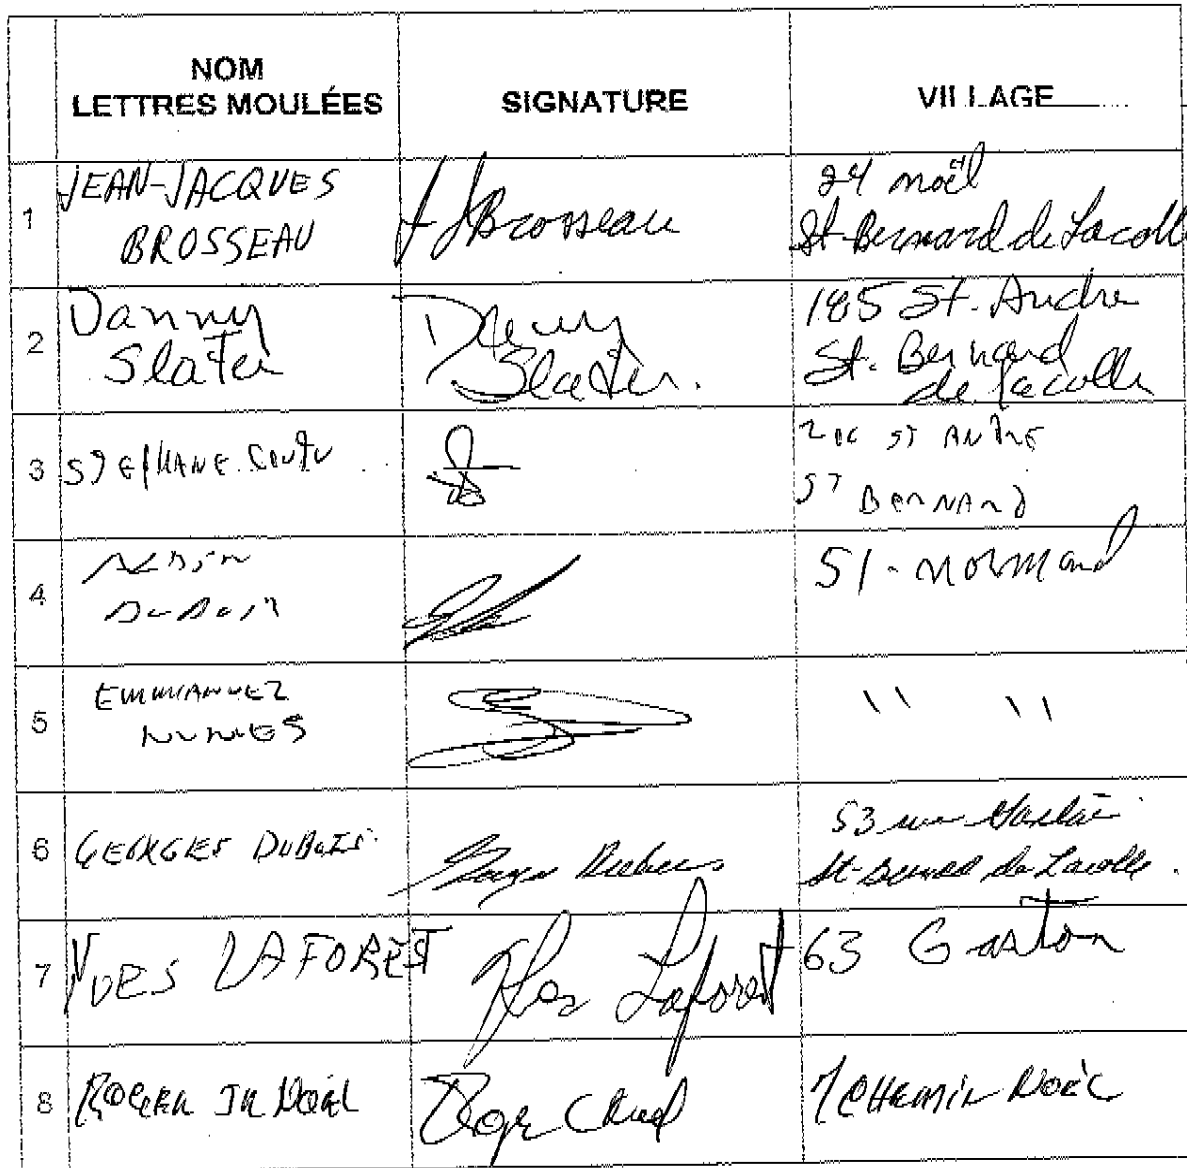 NOM
LETTRES MOULÉES
SIGNATURE
VILLAGE
1
JEAN-JACQUES
BROSSEAU
JJBrosseau
24 noël
St-Bernard de Lacolle
2
Danny
Slater
Danny
Slater.
185 St. Andre
St. Bernard
de Lacolle
3
STEPHANE COUTU
ST ANDRE
ST BERNARD
4
DUBOIS
51 - Normand
5
EMMANUEL
NUNES
" "
6
GEORGES DUBOIS
Georges Dubois
53 rue
St-Bernard de Lacolle.
7
YVES LAFOREST
Yves Laforest
63 Gaston
8
ROGER JR NOËL
Roger
CHEMIN NOËL